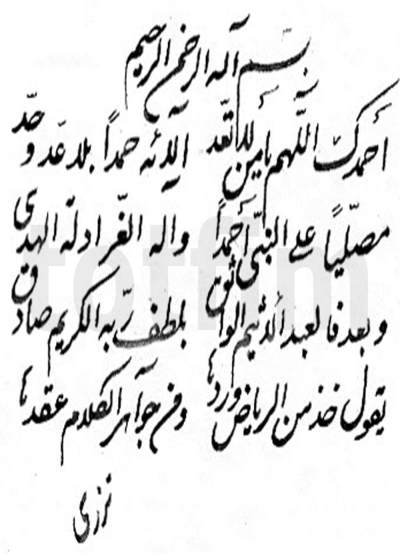 بسم الله الرحمن الرحيم
أحمدك اللّهم يا من لا تعدّ آلائه حمداً بلا عدّ وحدّ
مصلّياً على النبيّ أحمداً واله الغرّ ادلة الهدى
وبعد فالعبد الاثيم الواثق بلطف ربّه الكريم صادق
يقول خذ من الرياض وردها ومن جواهر الكلام عقدها